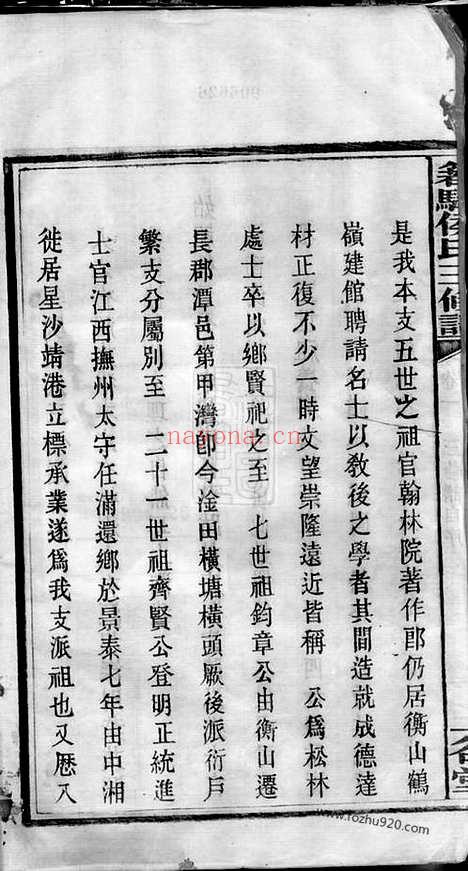 侯氏三修譜
是我本支五世之祖官翰林院著作郎仍居衡山鶴
嶺建館聘請名士以教後之學者其間造就成德達
材正復不少一時文望崇隆遠近皆稱 公爲松林
處士卒以鄉賢祀之至 七世祖鈞章公由衡山遷
長郡潭邑第甲灣卽今淦田橫塘橫頭厥後派衍戶
繁支分屬別至 二十一世祖齊賢公登明正統進
士官江西撫州太守任滿還鄉於景泰七年由中湘
徙居星沙靖港立標承業遂爲我支派祖也又歷八
nayona.cn
www.rozhu920.com